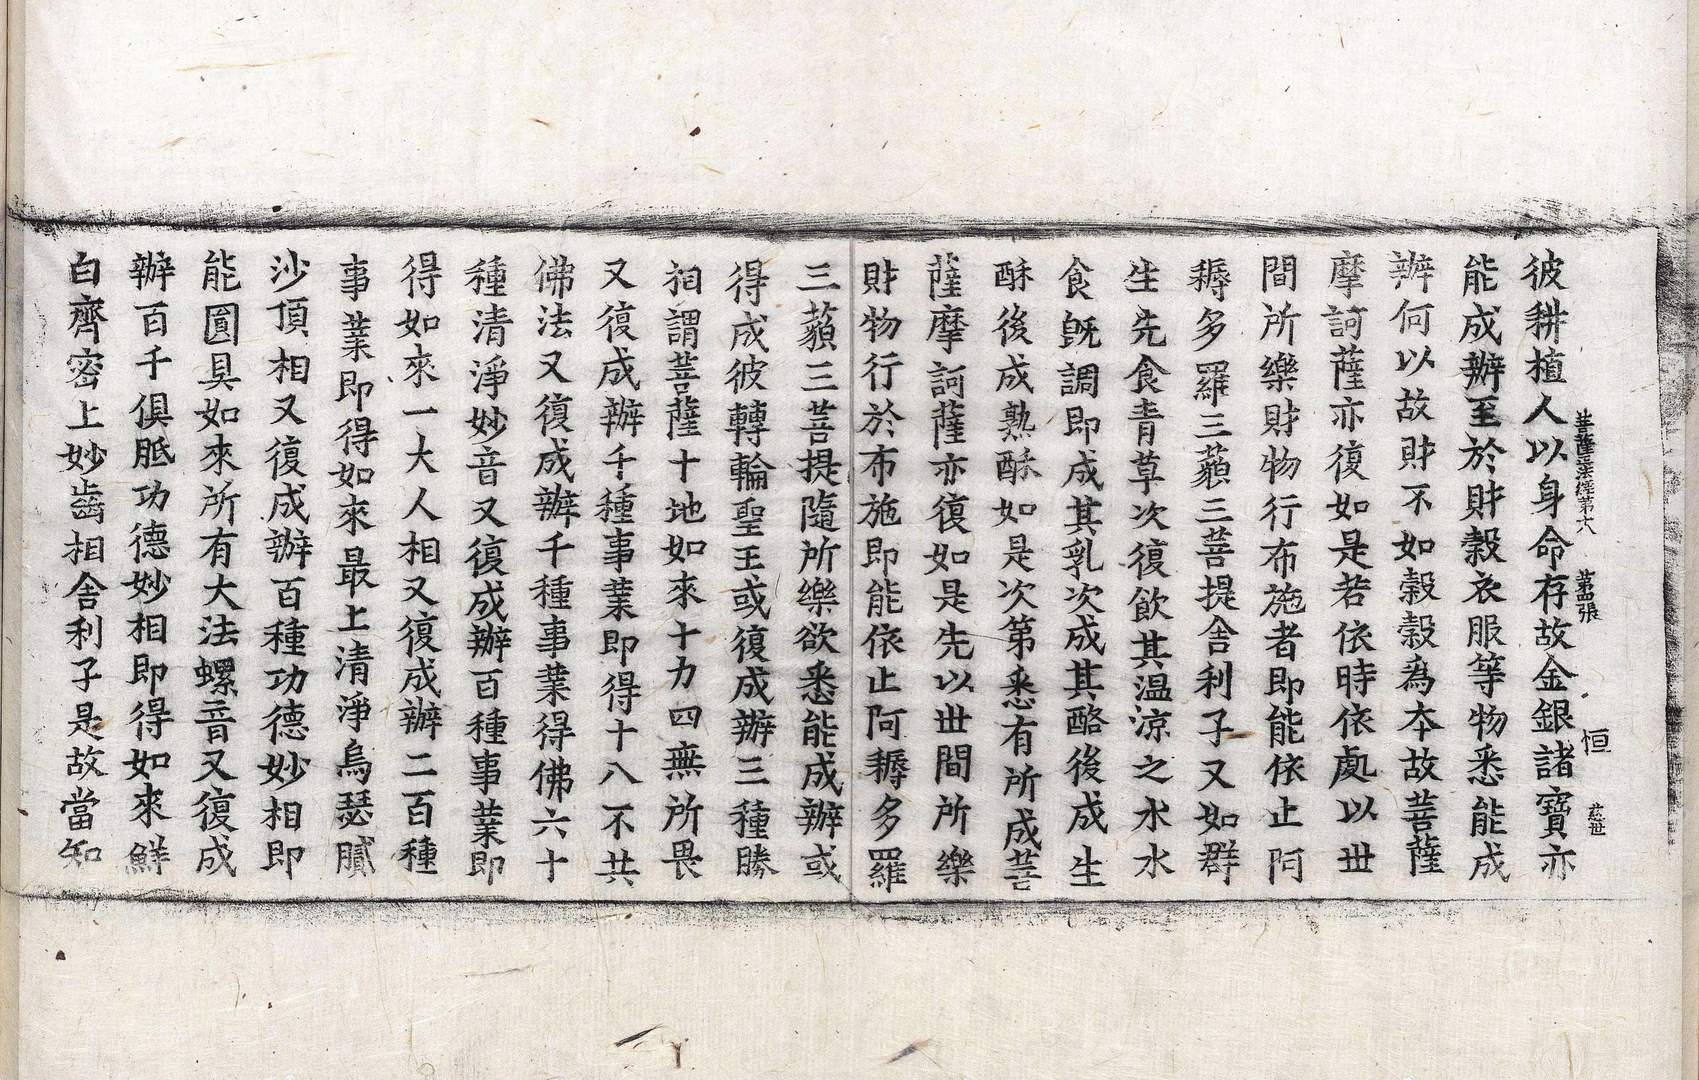 彼耕植人以身命存故金銀諸寶亦
能成辦至於財穀衣服等物悉能成
辦何以故財不如穀穀為本故菩薩
摩訶薩亦復如是若依時依處以世
間所樂財物行布施者即能依止阿
耨多羅三藐三菩提舍利子又如群
生先食青草次復飲其温涼之水水
食既調即成其乳次成其酪後成生
酥後成熟酥如是次第悉有所成菩
薩摩訶薩亦復如是先以世間所樂
財物行於布施即能依止阿耨多羅
三藐三菩提隨所樂欲悉能成辦或
得成彼轉輪聖王或復成辦三種勝
相謂菩薩十地如來十力四無所畏
又復成辦千種事業即得十八不共
佛法又復成辦千種事業得佛六十
種清淨妙音又復成辦百種事業即
得如來一大人相又復成辦二百種
事業即得如來最上清淨烏瑟膩
沙頂相又復成辦百種功德妙相即
能圓具如來所有大法螺音又復成
辦百千俱胝功德妙相即得如來鮮
白齊密上妙齒相舍利子是故當知
菩薩藏經第六 第四張 恒